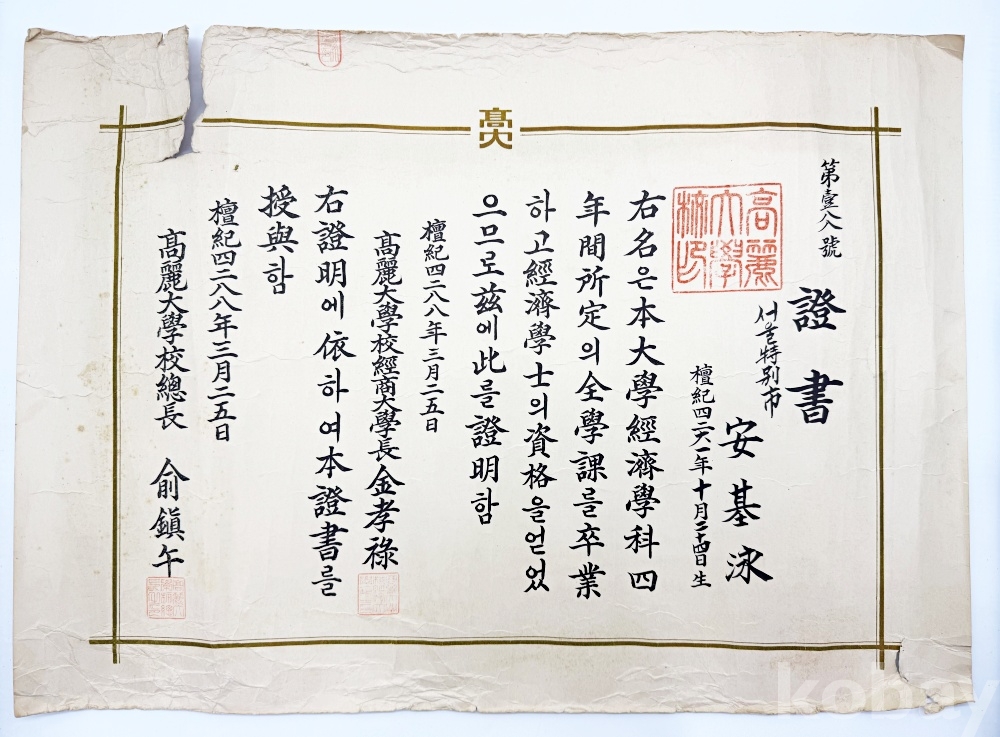 高大
第壹八八號
證書
서울特別市
安基泳
檀紀四二六一年十月二十四日生
高麗大學校印
右名은本大學經濟學科四
年間所定의全學課를卒業
하고經濟學士의資格을얻었
으므로茲에此를證明함
檀紀四二八八年三月二五日
高麗大學校經商大學長金孝祿
右證明에依하여本證書를
授與함
檀紀四二八八年三月二五日
高麗大學校總長 俞鎭午
kobay